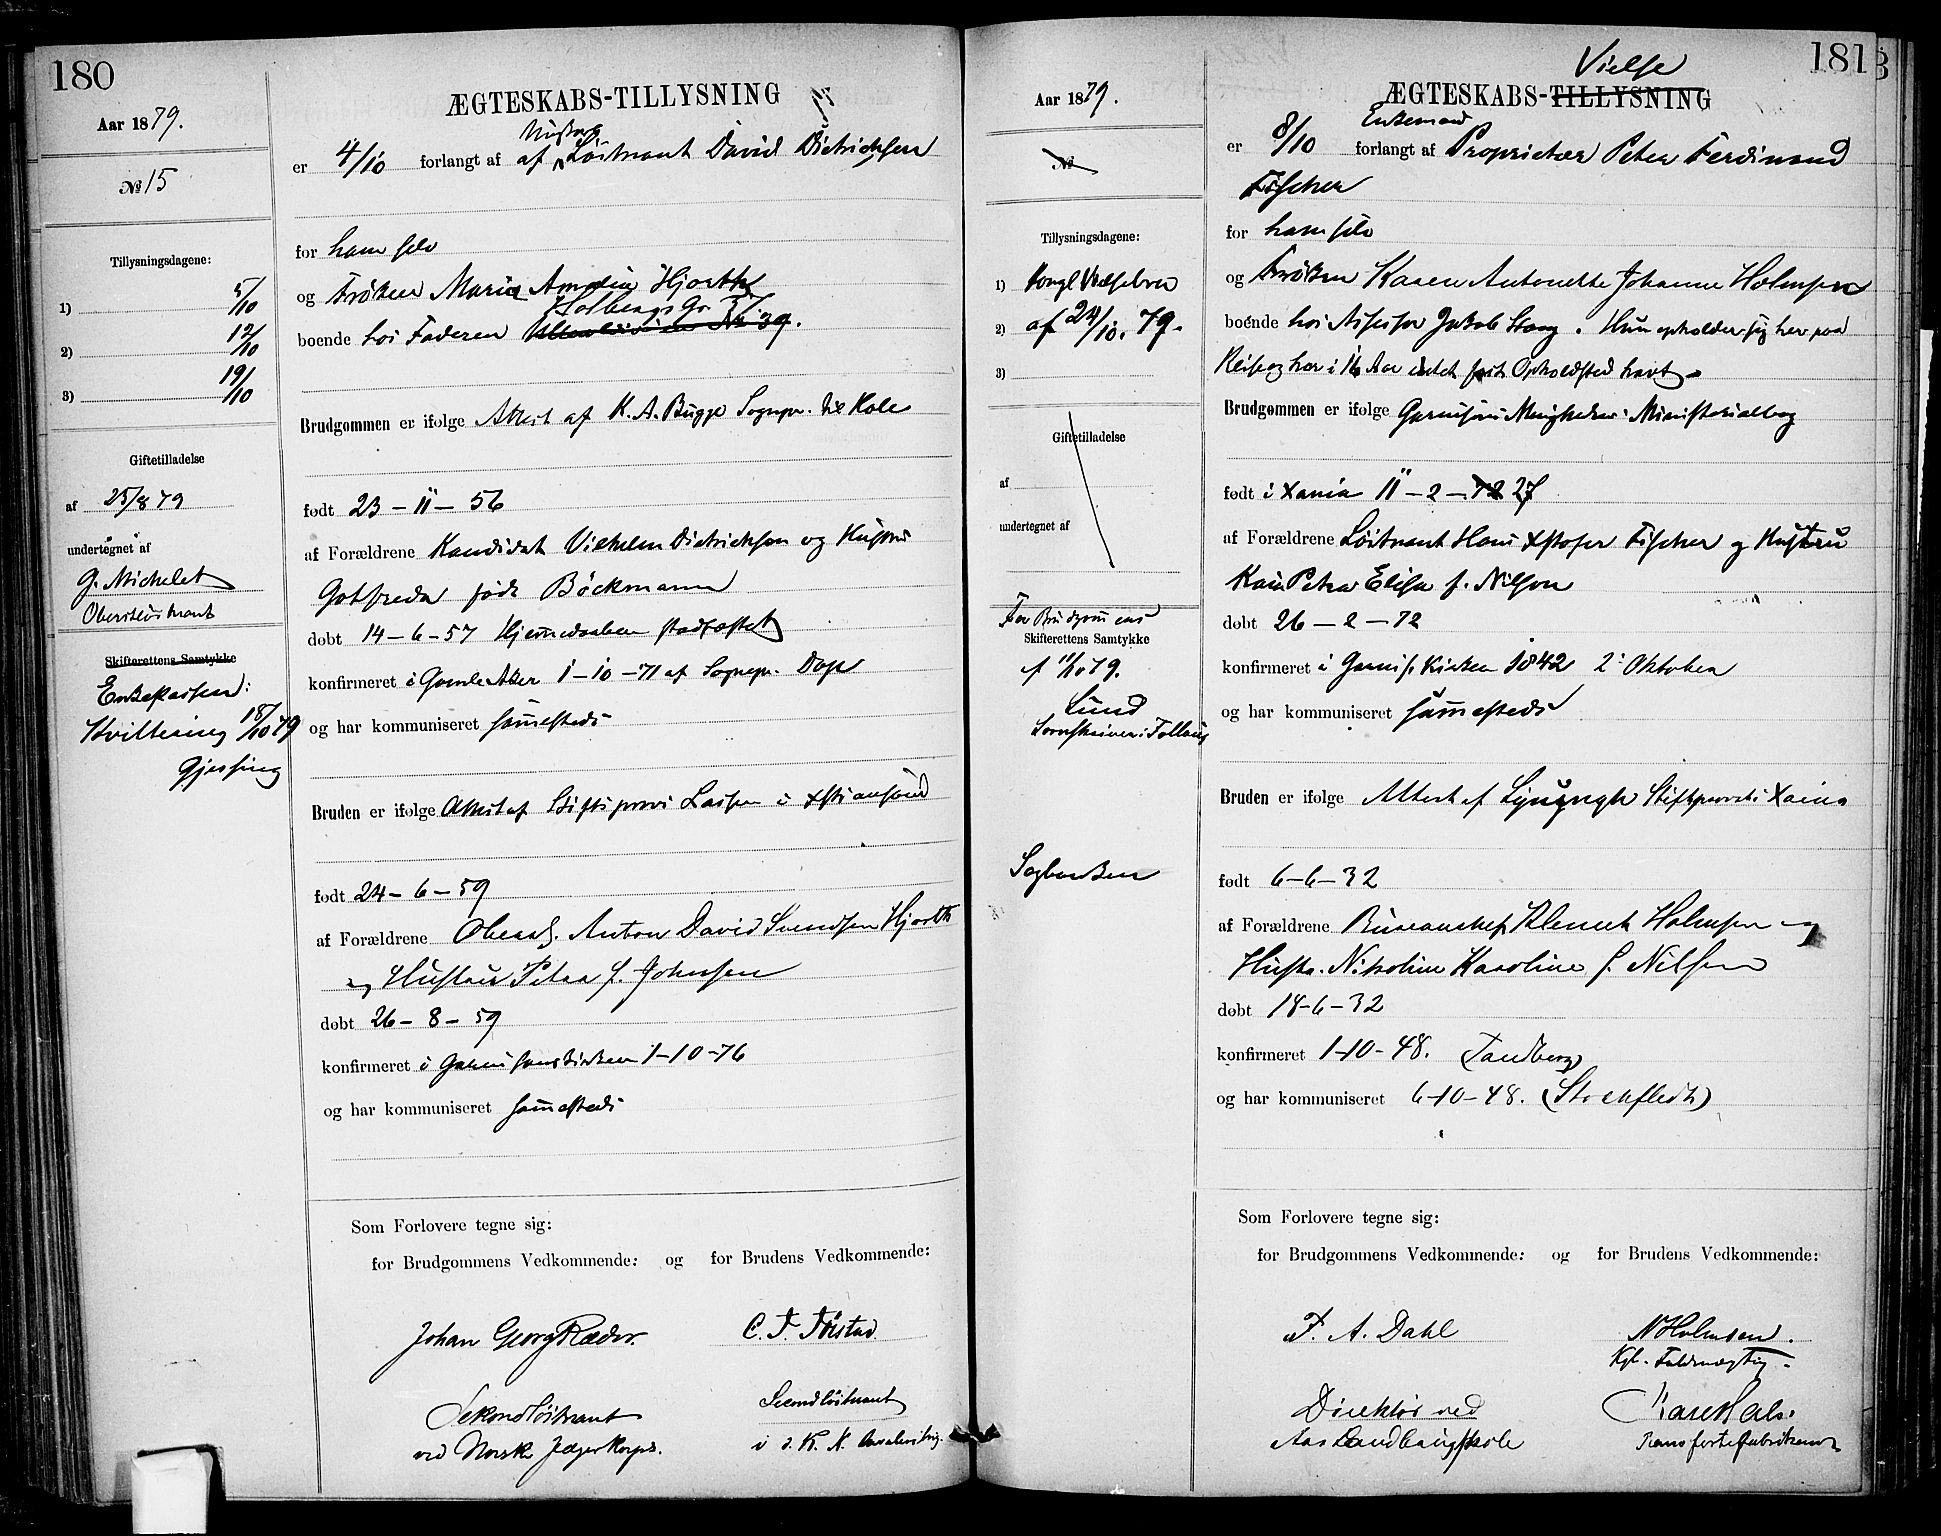 180
Aar 1879.
№ 15
Tillysningsdagene:
1) 5/10
2) 12/10
3) 19/10
Giftetilladelse
af 25/8 79
undertegnet af
G. Michelet
Oberstløitnant
Skifterettens Samtykke
Enkekassen:
Kvittering 18/10 79
Gjessing
ÆGTESKABS-TILLYSNING
er 4/10 forlangt af af Løitnant David Dietrichson
for ham selv
og Frøken Maria Amalia Hjorth
Holbergs Gr 37.
boende hos Faderen
Brudgommen er ifølge Attest af K. A. Bugge Sognepr. til Hole
født 23 - 11 - 56
af Forældrene Kandidat Vilhelm Dietrichson og Hustru
Gotfreda født Böckmann
døbt 14 - 6 - 57 Hjemmedaaben stadfæstet
konfirmeret i Gamle Aker 1 - 10 - 71 af Sognepr. Dop
og har kommuniseret sammesteds
Bruden er ifølge Attest af Stiftsprovst Lassen i Xstiansand
født 24 - 6 - 59
af Forældrene Oberstl. Anton David Svendsen Hjorth
og Hustru Petra f. Johnsen
døbt 26 - 8 - 59
konfirmeret i Garnisonskirken 1 - 10 - 76
og har kommuniseret sammesteds
Som Forlovere tegne sig:
for Brudgommens Vedkommende: og for Brudens Vedkommende:
Johan Georg Ræder. C. F. Tørstad
Sekondløitnant Secondløitnant
ved Norske Jægerkorps. i d. K. N.
181
Aar 1879.
№
Tillysningsdagene:
1) Kongl Vielsebrev
2) af 24/10. 79.
3)
Giftetilladelse
af
undertegnet af
For Brudgommens
Skifterettens Samtykke
af 11/10 79.
Lund
Sorenskriver i Follo
Vielse
ÆGTESKABS-TILLYSNING
Enkemand
er 8/10 forlangt af Proprietær Peter Ferdinand
Fischer
for ham selv
og Frøken Karen Antonette Johanne Holmsen
boende hos Assessor Jakob Stang. Hun opholder sig her paa
Reise og har i 16 Aar intet fast Opholdsted havt.
Brudgommen er ifølge Garnisons Menigheders Ministerialbog
født i Xania 11 - 2 - 72 27
af Forældrene Løitnant Hans Xstofer Fischer og Hustru
Petra Elisa f. Nilson
døbt 26 - 2 - 72
konfirmeret i Garnis. Kirken 1842 2. Oktober
og har kommuniseret sammesteds
Bruden er ifølge Attest af Stiftsprovst i Xania
født 6 - 6 - 32
af Forældrene Bureauchef Klemet Holmsen og
Hustr. Nikoline Karoline f. Nilsen
døbt 18 - 6 - 32
konfirmeret 1 - 10 - 48. (Tandberg)
og har kommuniseret 6 - 10 - 48. (Stockfleth)
Som Forlovere tegne sig:
for Brudgommens Vedkommende: og for Brudens Vedkommende:
F. A. Dahl N Holmsen.
Kgl. Fuldmægtig.
Direktør ved Karl Hals.
Aas Landbrugsskole Pianofortefabrikant